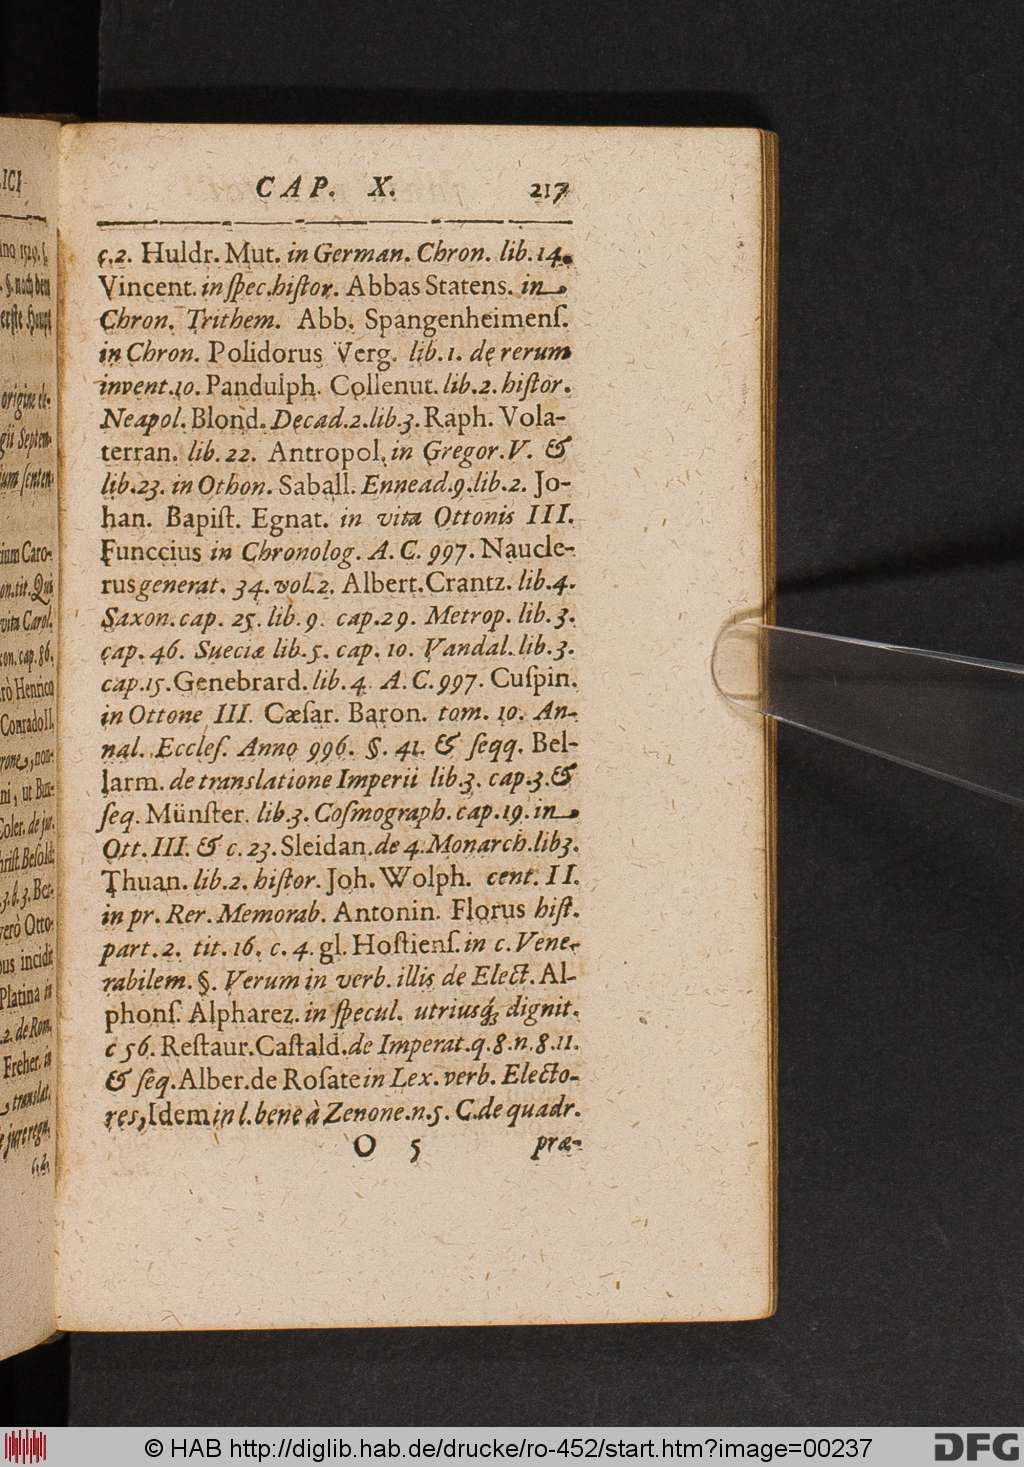 CAP. X. 217
c.2. Huldr. Mut. in German. Chron. lib. 14.
Vincent. in ſpec. hiſtor. Abbas Statens. in
Chron. Trithem. Abb. Spangenheimenſ.
in Chron. Polidorus Verg. lib. 1. de rerum
invent. 10. Pandulph. Collenut. lib. 2. hiſtor.
Neapol. Blond. Decad. 2. lib. 3. Raph. Vola-
terran. lib. 22. Antropol. in Gregor. V. &
lib. 23. in Othon. Saball. Ennead. 9. lib. 2. Jo-
han. Bapiſt. Egnat. in vita Ottonis III.
Funccius in Chronolog. A. C. 997. Naucle-
rus generat. 34. vol. 2. Albert. Crantz. lib. 4.
Saxon. cap. 25. lib. 9. cap. 29. Metrop. lib. 3.
cap. 46. Sueciæ lib. 5. cap. 10. Vandal. lib. 3.
cap. 15. Genebrard. lib. 4. A. C. 997. Cuſpin.
in Ottone III. Cæſar. Baron. tom. 10. An-
nal. Eccleſ. Anno 996. §. 41. & ſeqq. Bel-
larm. de translatione Imperii lib. 3. cap. 3. &
ſeq. Münſter. lib. 3. Coſmograph. cap. 19. in
Ott. III. & c. 23. Sleidan. de 4. Monarch. lib 3.
Thuan. lib. 2. hiſtor. Joh. Wolph. cent. II.
in pr. Rer. Memorab. Antonin. Florus hiſt.
part. 2. tit. 16. c. 4. gl. Hoſtienſ. in c. Vene-
rabilem. §. Verum in verb. illis de Elect. Al-
phonſ. Alpharez. in ſpecul. utriusq́; dignit.
c 56. Reſtaur. Caſtald. de Imperat. q. 8. n. 8. 11.
& ſeq. Alber. de Roſate in Lex. verb. Electo-
res, Idem in l. bene à Zenone. n. 5. C. de quadr.
O 5 præ-
© HAB http://diglib.hab.de/drucke/ro-452/start.htm?image=00237
DFG